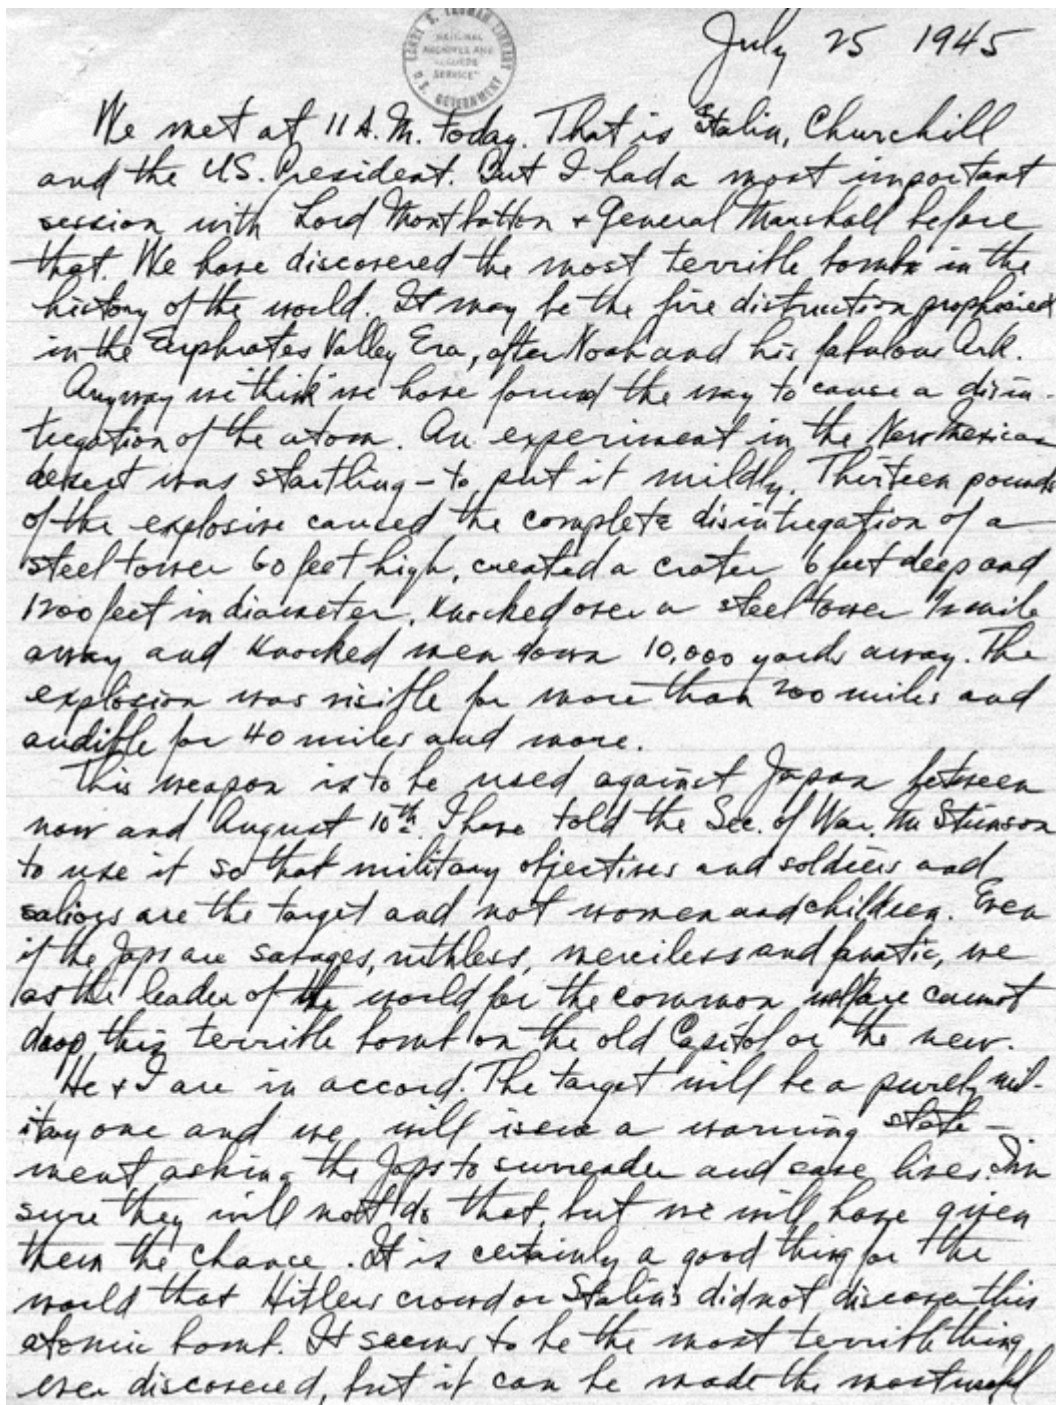 HARRY S. TRUMAN LIBRARY
NATIONAL
ARCHIVES AND
RECORDS
SERVICE
U.S. GOVERNMENT
July 25 1945
We met at 11 A.M. today. That is Stalin, Churchill
and the U.S. President. But I had a most important
session with Lord Mountbatten & General Marshall before
that. We have discovered the most terrible bomb in the
history of the world. It may be the fire distruction prophesied
in the Euphrates Valley Era, after Noah and his fabulous Ark.
Anyway we think we have found the way to cause a disin-
tegration of the atom. An experiment in the New Mexican
desert was startling - to put it mildly. Thirteen pounds
of the explosive caused the complete disintegration of a
steel tower 60 feet high, created a crater 6 feet deep and
1200 feet in diameter, knocked over a steel tower 1/2 mile
away and knocked men down 10,000 yards away. The
explosion was visible for more than 200 miles and
audible for 40 miles and more.
This weapon is to be used against Japan between
now and August 10th. I have told the Sec. of War, Mr. Stimson
to use it so that military objectives and soldiers and
sailors are the target and not women and children. Even
if the Japs are savages, ruthless, merciless and fanatic, we
as the leader of the world for the common welfare cannot
drop this terrible bomb on the old Capitol or the new.
He & I are in accord. The target will be a purely mil-
itary one and we will issue a warning state-
ment asking the Japs to surrender and save lives. I'm
sure they will not do that, but we will have given
them the chance. It is certainly a good thing for the
world that Hitler's crowd or Stalin's did not discover this
atomic bomb. It seems to be the most terrible thing
ever discovered, but it can be made the most useful